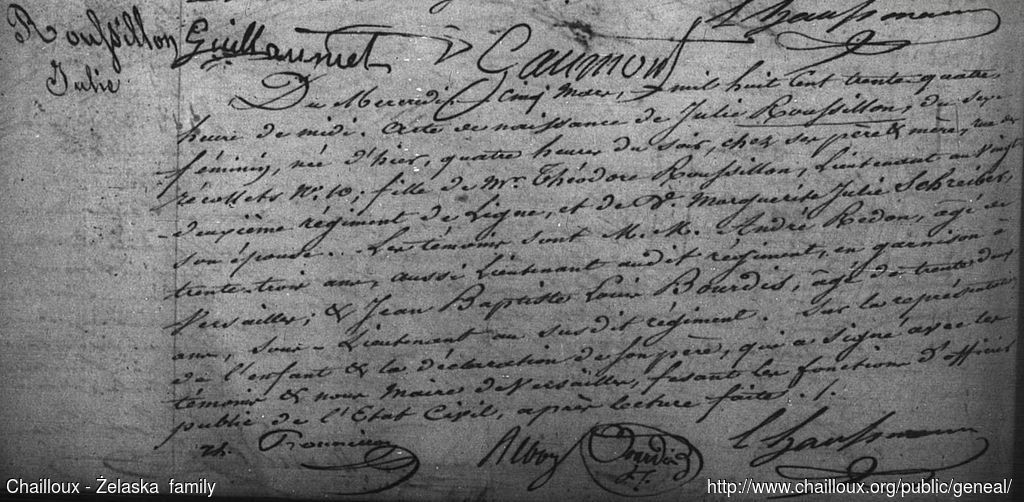 Roussillon
Julie
Guillaumet Gaumont L Haussmann
Du Mercredi cinq Mars, mil huit Cent trente quatre
heure de midi. Acte de naissance de Julie Roussillon, du sexe
féminin, née d'hier, quatre heures du soir, chez ses père & mère, rue des
récollets N.º 10; fille de Mr. Théodore Roussillon, Lieutenant au Vingt
deuxième régiment de Ligne, et de De. Marguerite Julie Schreiber,
son épouse. Les témoins sont M. M. André Redon, âgé de
trente-trois ans, aussi Lieutenant audit régiment, en garnison à
Versailles; & Jean Baptiste Louis Bourdis, âgé de trente deux
ans, Sous-Lieutenant au susdit régiment. Sur la représentation
de l'enfant & la déclaration de son père, qui a signé avec les
témoins & nous Maire de Versailles, faisant les fonctions d'officier
public de l'Etat Civil, après lecture faite ./.
th. L Haussmann
Chailloux - Żelaska family
http://www.chailloux.org/public/geneal/